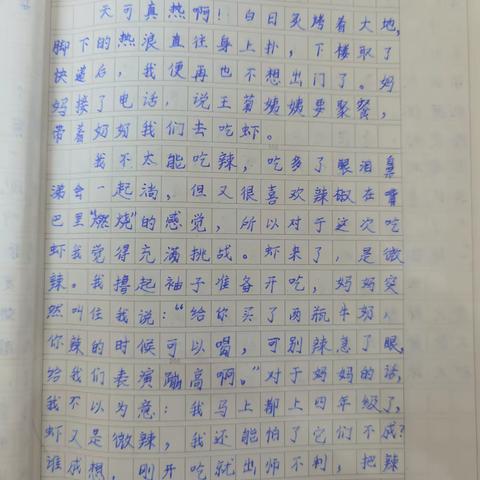 天可真热啊！白日炙烤着大地，
脚下的热浪直往身上扑，下楼取了
快递后，我便再也不想出门了。妈
妈接了电话，说王菊姨姨要聚餐，
带着奶奶我们去吃虾。
我不太能吃辣，吃多了眼泪鼻
涕会一起淌，但又很喜欢辣椒在嘴
巴里“燃烧”的感觉，所以对于这次吃
虾我觉得充满挑战。虾来了，是微
辣。我撸起袖子准备开吃，妈妈突
然叫住我说：“给你买了两瓶牛奶，
你辣的时候可以喝，可别辣急了眼，
给我们表演蹦高啊。”对于妈妈的话，
我不以为意：我马上都上四年级了，
虾又是微辣，我还能怕了它们不成？
谁成想，刚开吃就出师不利，把辣